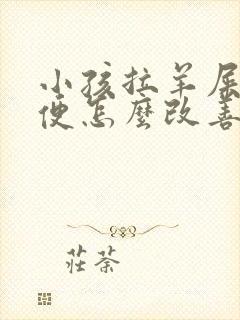 小孩拉羊屎
便怎麽改善
莊荼